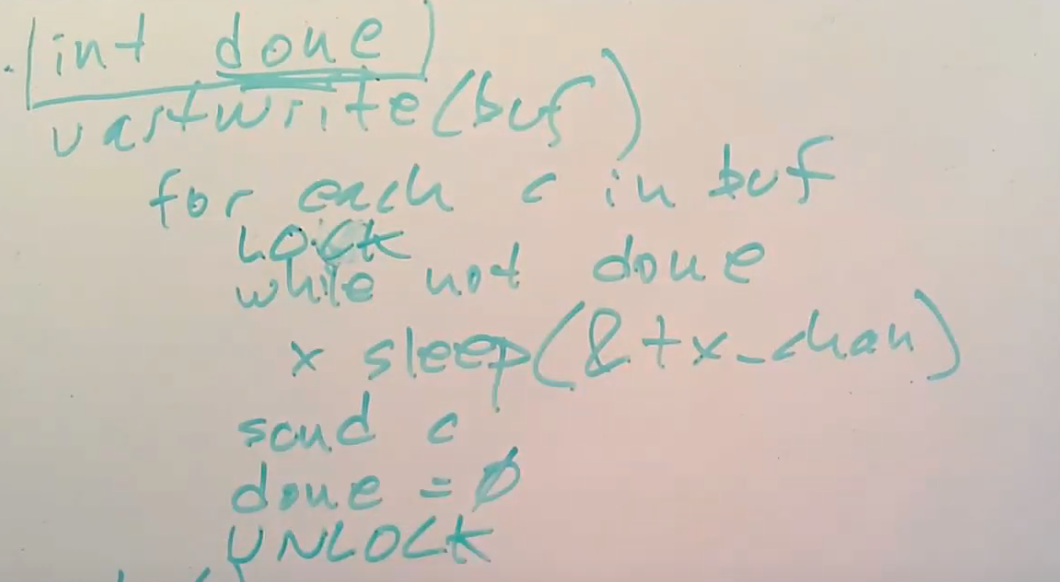 int done
uartwrite(buf)
for each c in buf
LOCK
while not done
x sleep(&tx_chan)
send c
done = 0
UNLOCK